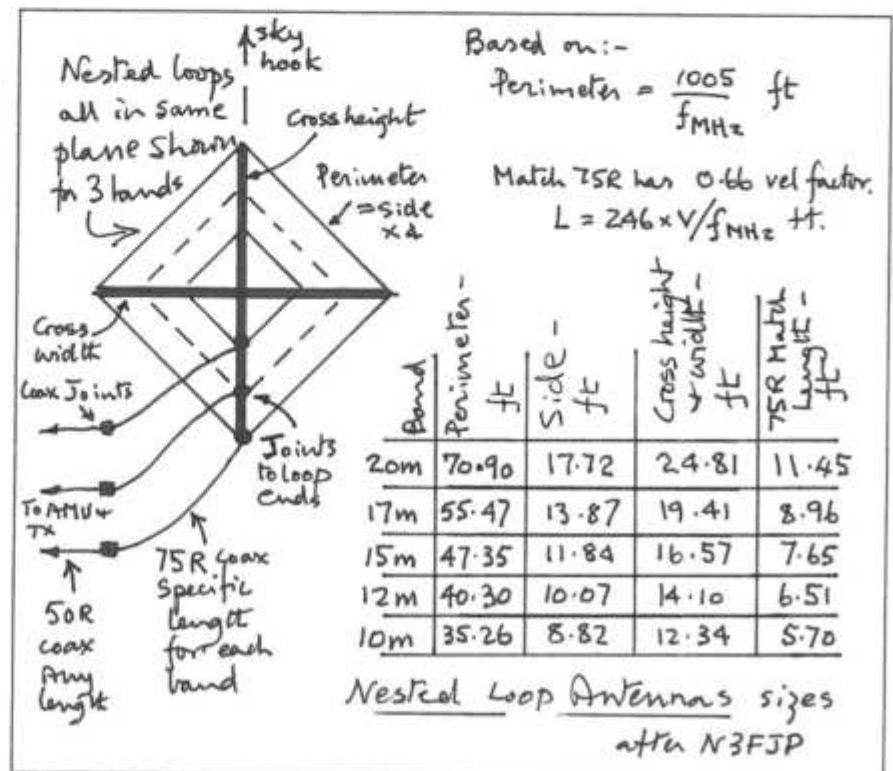 sky
hook
Nested loops
all in same
plane shown
for 3 bands
Cross height
Perimeter
=side
x4
Cross
width
Coax Joints
Joints
to loop
ends
To AMU+
TX
50R
coax
Any
length
75R coax
Specific
length
for each
band
Based on:-
Perimeter = 1005
fMHz ft
Match 75R has 0.66 vel factor.
L = 246 x V/fMHz ft.
Band Perimeter- ft Side - ft Cross height + width - ft 75R Match Length - ft
20m 70.90 17.72 24.81 11.45
17m 55.47 13.87 19.41 8.96
15m 47.35 11.84 16.57 7.65
12m 40.30 10.07 14.10 6.51
10m 35.26 8.82 12.34 5.70
Nested Loop Antennas sizes
after N3FJP